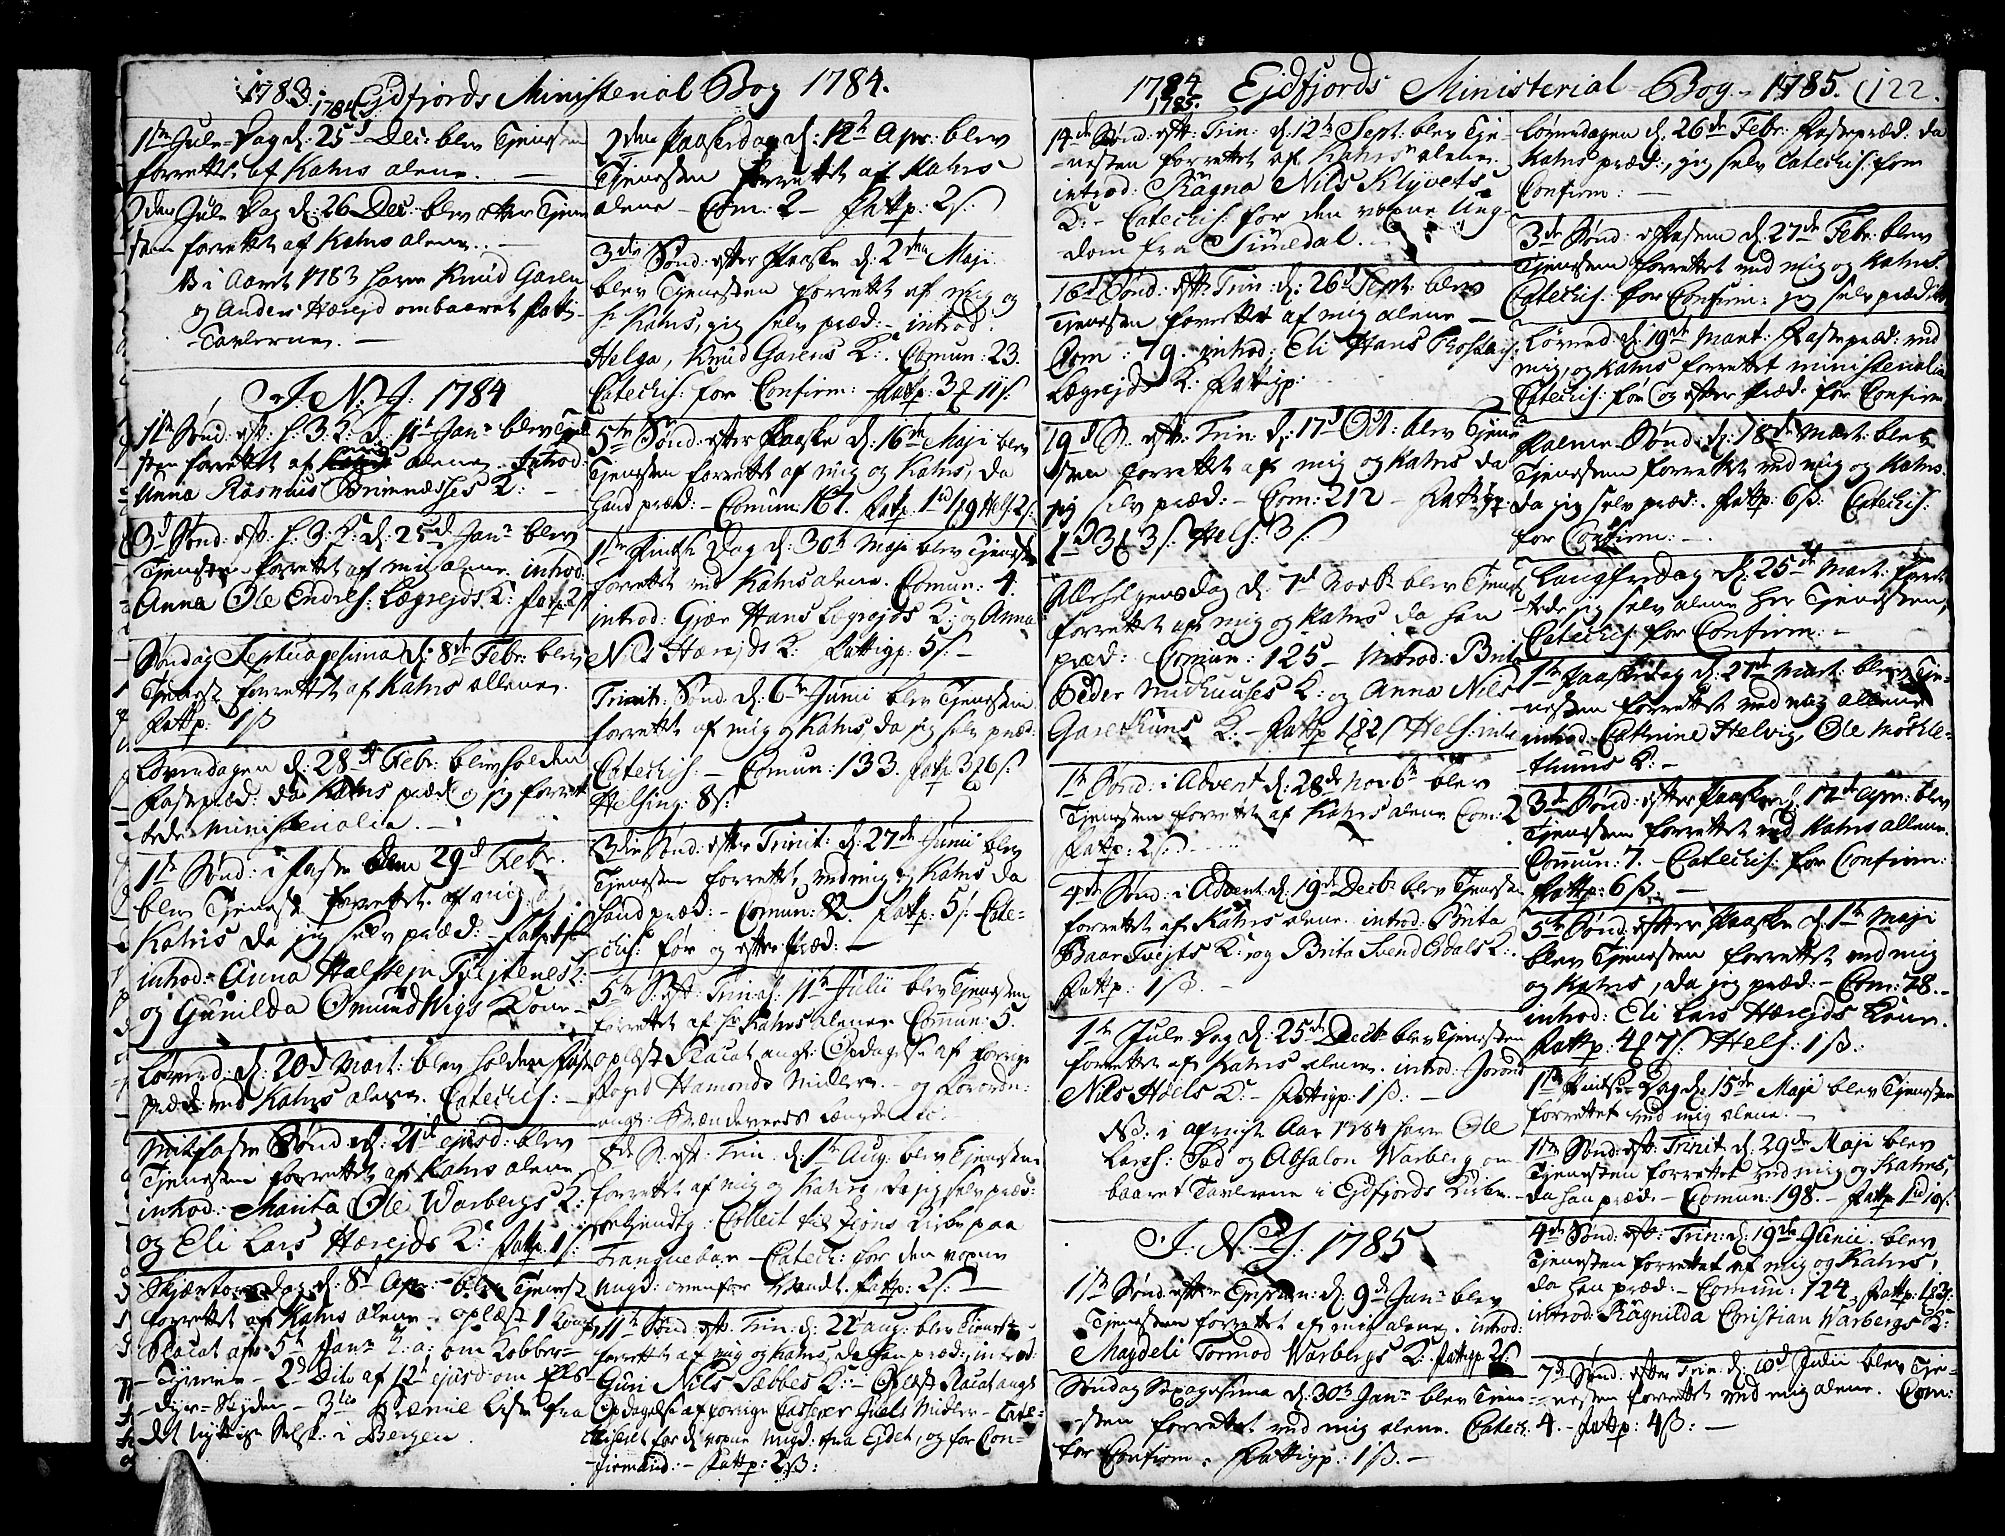 1783. 1784. Ejdfiords Ministerial Bog 1784.
1ste Jule-Dag d: 25d Dec: blev Tjenesten
forrettet af Kahrs alene. —
2den Jule Dag d: 26 Dec: blev atter Tiene
sten forrettet af Kahrs alene. —
NB i Aaret 1783 have Knud Garen
og Anders Hæreid ombaaret Fatt:
Tavlerne. —
J. N. J. 1784
1ste Sønd: eft: h. 3. K: d: 11t Janr blev Tjene
sten forrettet af alene. Introd:
Anna Rasmus Brimnæsses K: —
3d Sønd: eft: h. 3. K: d: 25d Janr blev
Tjenesten forrettet af mig alene. introd:
Anna Ole Endres: Lægrejds K: Fattp: 2ſ
Søndag Septuagesima d: 8de Febr: blev
Tjenest forrettet af Kahrs allene.
Fattp: 1ß
Løverdagen d: 28d Febr: blev holden
Fastepræd: da Kahrs præd: og jeg forret
tede ministerialia. —
1ste Sønd: i faste den 29d Febr:
blev Tjenest forrettet af mig og
Kahrs da jeg selv præd: —
introd: Anna Halstejn Tvejtenes K:
og Gunilda Omund Wigs Kone —
Løverd: d: 20d Mart: blev holden faste
præd: ved Kahrs alene. Catechis: —
Midfaste Sønd: d: 21d ejusd: blev
Tjenesten forrettet af Kahrs alene
introd: Marita Ole Warbergs K:
og Eli Lars Hærejds K: Fattp: 1ſ:
Skjærtorsdag d: 8d Apr: blev Tjenest
forrettet af Kahrs alene. oplæst 1 Kongl:
Placat af 5t Janr h: a: om Kobber-
2d Dito af 12t ejusd om
Dyr-Skyden — 3tio Præmie liste fra
det nyttige Selsk: i Bergen.
2den Paaskedag d: 12t Apr: blev
Tjenesten forrettet af Kahrs
alene — Com: 2 — Fattp: 2ſ:
3die Sønd: efter Paaske d: 2den Maji
blev Tjenesten forrettet af mig og
h: Kahrs, jeg selv præd: — introd:
Helga, Knud Garens K: Comun: 23.
Catechis: for Confirm: Fattp: 3 ℳ 11ſ:
5te Sønd: efter Paaske d: 16de Maji blev
Tjenesten forrettet af mig og Kahrs, da
hand præd: — Comun: 167.
1ste Pintse Dag d: 30t Maji blev Tjenesten
forrettet ved Kahrs alene. Comun: 4.
introd: Gjøe Hans Legrejds K: og Anna
Nils Hærejds K: Fattigp: 5ſ: —
Trinit: Sønd: d: 6te Junii blev Tjenesten
forrettet af mig og Kahrs, da jeg selv præd:
Catechis: — Comun: 133. Fattp: 3 ℳ 6ſ:
Helsing: 8ſ:
3die Sønd: efter Trinit: d: 27de Junii blev
Tjenesten forrettet ved mig og Kahrs da
hand præd: — Comun: 82. Fattp: 5ſ: Cate-
chis: før og efter Præd: —
5te S: eft: Trinit: 11te Julii blev Tjenesten
forrettet af hr Kahrs alene. Comun: 5.
oplæst Placat ang: Opdagelse af forrige
Foged Hamonds Midler. — og Forordn:
ang: Brændeveeds Længde &c:
8de S: eft: Trin: d: 1te Aug: blev Tjenesten
forrettet af mig og Kahrs, da jeg selv præd:
Collect til Zions Kirke paa
Tranquebar — Catech: for den voxne
Ungd: ovenfor Vandet. Fattp: 2ſ: —
11te Sønd: eft: Trin: d: 22 Aug: blev Tjenest
forrettet af mig og Kahrs, da han præd: introd:
Guri Nils Sæbbes K: — Oplæst Placat ang:
Opdagelse af forrige Casserer Juels Midler — Cate-
chiseret for d: voxne Ungd: fra Ejdet, og for Con-
firmand: — Fattp: 2ß:
1784 1785. Ejdfjords Ministerial-Bog — 1785. (122.
14de Sønd: eft: Trin: d: 12te Sept: blev Tje-
nesten forrettet af Kahrs alene.
introd: Ragna Nils Klyvets
K: — Catechis: for den voxne Ung-
dom fra Simedal. —
16d Sønd: eft: Trin: d: 26d Sept: blev
Tjenesten forrettet af mig alene —
Com: 79. introd: Eli Hans
Lægrejds K: Fattigp:
19d S: eft: Trin: d: 17d Oct: blev Tjene
sten forrettet af mig og Kahrs da
jeg selv præd: — Com: 212 — Fattigp:
1 rd 3 ℳ 3ſ: Hels: 3ſ:
Allehelgensdag d: 7d Novbr: blev Tjenest
forrettet af mig og Kahrs da han
præd: Comun: 125 — Introd: Brita
Peder Midhuuses K: og Anna Nils
Garethuns K: —
1te Sønd: i Advent d: 28de Novbr blev
Tjenesten forrettet af Kahrs alene Com: 2
Fattp: 2ſ:
4de Sønd: i Advent d: 19de Decbr blev Tjenesten
forrettet af Kahrs alene. introd: Brita
Baar Tvejts K: og Brita Svend Ejdals K:
Fattp: 1ß: —
1te Jule Dag d: 25de Decbr blev Tjenesten
forrettet af Kahrs alene. introd: Joron
Nils Hoels K: — Fattigp: 1ß: —
NB: i afvigte Aar 1784 have Ole
Larss: Sæd og Absalon Warberg om
baaret Tavlerne i Ejdfjords Kirke. —
J. N. J. 1785
1ste Sønd: efter Epiphan: d: 9de Janr blev
Tjenesten forrettet af mig alene. introd:
Magdeli Tormod Warbergs K: Fattigp: 2ſ:
Søndag Sexagesima d: 30te Janr blev Tjene-
sten forrettet ved mig alene. Catech:
for Confirm. Fattigp: 1ß: —
Løverdagen d: 26de Febr: Fastepræd: da
Kahrs præd:, jeg selv catechis: for
Confirm: —
3de Sønd: i Fasten d: 27de Febr: blev
Tjenesten forrettet ved mig og Kahrs.
Catechis: for Confirm: jeg selv præd:
Løverd: d: 19de Mart: Fastepræd: ved
mig, og Kahrs forrettet ministerialia
Catechis: før og efter Præd: for Confirm
Palme-Sønd: d: Mart: blev
Tjenesten forrettet ved mig og Kahrs.
da jeg selv præd: Fattp: 6ß: Catechis:
for Confirm: —
Langfredag d: 25de Mart: forret-
tede jeg selv alene her Tjenesten,
Catechis: for Confirm: —
1te Paaskedag d: 27d Mart: blev Tje-
nesten forrettet ved mig allene
introd: Cathrine Helvig, Ole Mochle-
thuns K: —
3d Sønd: efter Paaske d: 17de Apr: blev
Tjenesten forrettet ved Kahrs allene.
Comun: 7. — Catechis: for Confirm:
Fattp: 6ß: —
5te Sønd: efter Paaske d: 1te Maji
blev Tjenesten forrettet ved mig
og Kahrs, da jeg præd: — Com: 78. —
introd: Eli Lars Hærejds Kone.
Fattp: 4 ℳ 7ſ: Hels: 1ß:
1te Pintse-Dag d: 15de Maji blev Tjenesten
forrettet ved mig alene. —
1te Sønd: eft: Trinit: d: 29de Maji blev
Tjenesten forrettet ved mig og Kahrs,
da han præd: — Comun: 198. —
4de Sønd: eft: Trin: d: 19de Junii blev
Tjenesten forrettet af mig og Kahrs,
da han præd: — Comun: 124.
introd: Ragnilda Christian Warbergs K:
7d Sønd: efter Trin: d: 10d Julii blev Tje-
nesten forrettet ved mig alene. Com:
4. — Fattp: 4ß: —